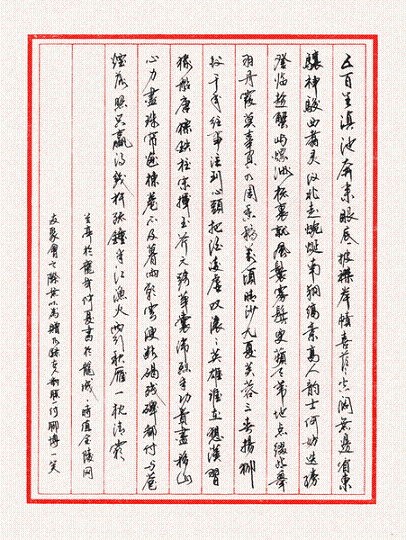 五百里滇池奔來眼底披襟岸幘喜茫茫空闊無邊看東
驤神駿西翥靈儀北走蜿蜒南翔縞素高人韻士何妨選勝
登臨趁蟹嶼螺洲梳裹就風鬟霧鬢更蘋天葦地點綴些翠
羽丹霞莫辜負四圍香稻萬頃晴沙九夏芙蓉三春楊柳
數千年往事注到心頭把酒凌虛嘆滾滾英雄誰在想漢習
樓船唐標鐵柱宋揮玉斧元跨革囊偉烈豐功費盡移山
心力盡珠簾畫棟卷不及暮雨朝雲便斷碣殘碑都付與蒼
煙落照只贏得幾杵疏鐘半江漁火兩行秋雁一枕清霜
於龍年仲夏書於龍城時值金陵網
友聚會之際聊博一笑